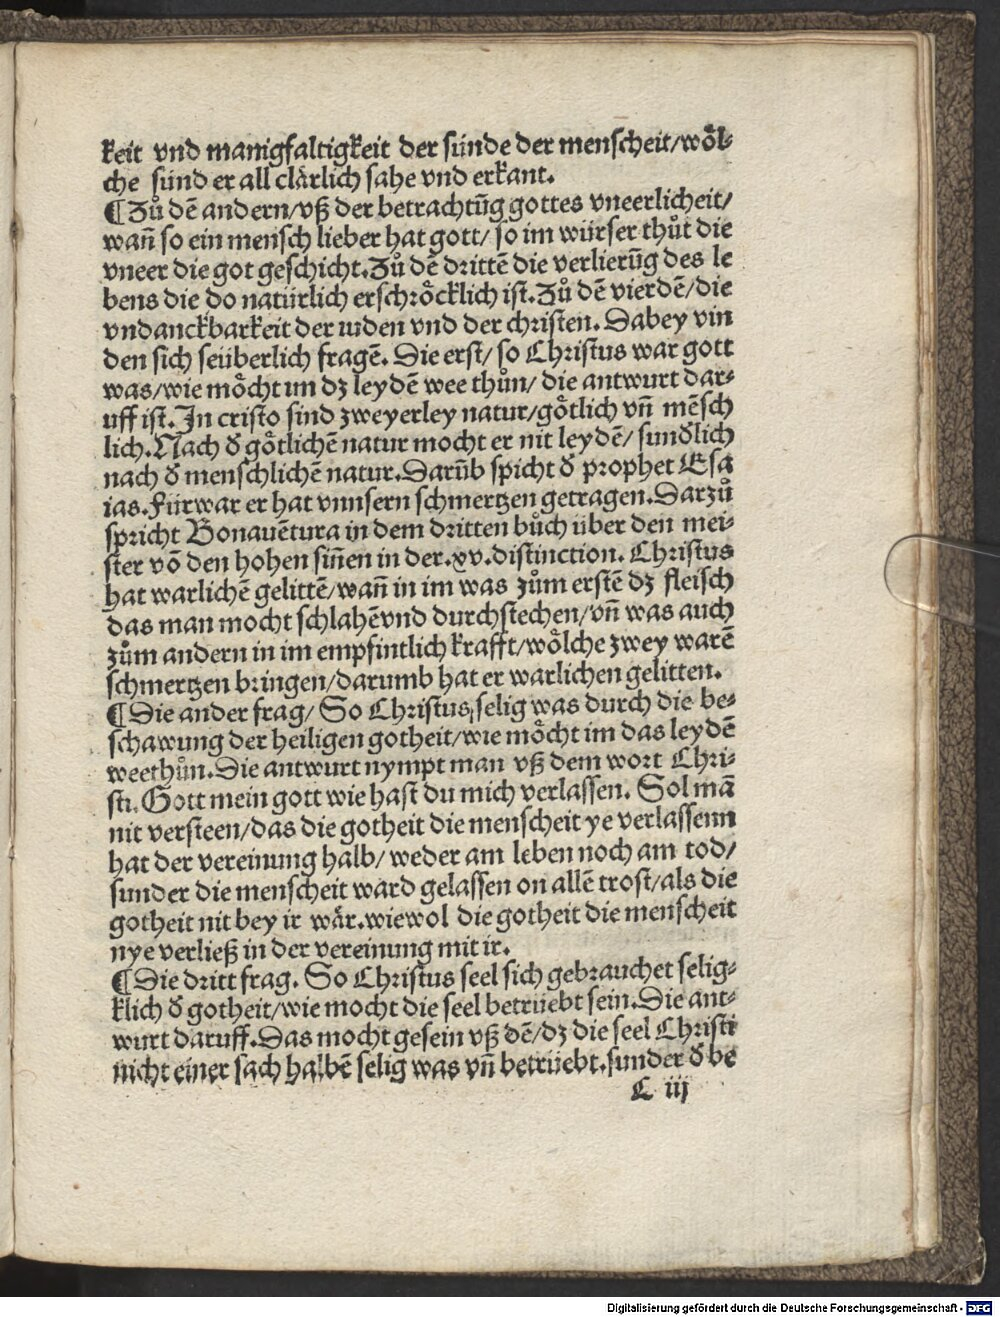 keit vnd manigfaltigkeit der sünde der menscheit/wöl-
che sünd er all clärlich sahe vnd erkant.
¶Zů dē andern/vß der betrachtūg gottes vneerlicheit/
wañ so ein mensch lieber hat gott/ so im würser thůt die
vneer die got geschicht.Zů dē drittē die verlierūg des le
bens die do natürlich erschröcklich ist.Zů dē vierdē/die
vndanckbarkeit der iuden vnd der christen. Dabey vin
den sich seüberlich fragē. Die erst/ so Christus war gott
was/wie möcht im dz leydē wee thůn/ die antwurt dar-
uff ist.In cristo sind zweyerley natur/götlich vñ mēsch
lich.Nach ď götlichē natur mocht er nit leydē/ sunďlich
nach ď menschlichē natur.Darūb spicht ď prophet Esa
ias.Fürwar er hat vnnsern schmertzen getragen.Darzů
spricht Bonauētura in dem dritten bůch über den mei-
ster vō den hohen siñen in der.xv.distinction. Christus
hat warlichē gelittē/wañ in im was zům erstē dz fleisch
das man mocht schlahēvnd durchstechen/vñ was auch
zům andern in im empfintlich krafft/wölche zwey warē
schmertzen bringen/darumb hat er warlichen gelitten.
¶Die ander frag/ So Christus selig was durch die be-
schawung der heiligen gotheit/wie möcht im das leydē
weethůn.Die antwurt nympt man vß dem wort Chri-
sti. Gott mein gott wie hast du mich verlassen. Sol mā
nit versteen/das die gotheit die menscheit ye verlassenn
hat der vereinung halb/ weder am leben noch am tod/
sunder die menscheit ward gelassen on allē trost/als die
gotheit nit bey ir wär.wiewol die gotheit die menscheit
nye verließ in der vereinung mit ir.
¶Die dritt frag. So Christus seel sich gebrauchet selig-
klich ď gotheit/wie mocht die seel betrüebt sein.Die ant-
wurt daruff.Das mocht gesein vß dē/dz die seel Christi
nicht einer sach halbē selig was vñ betrüebt.sunder ď be
C iij
Digitalisierung gefördert durch die Deutsche Forschungsgemeinschaft - DFG